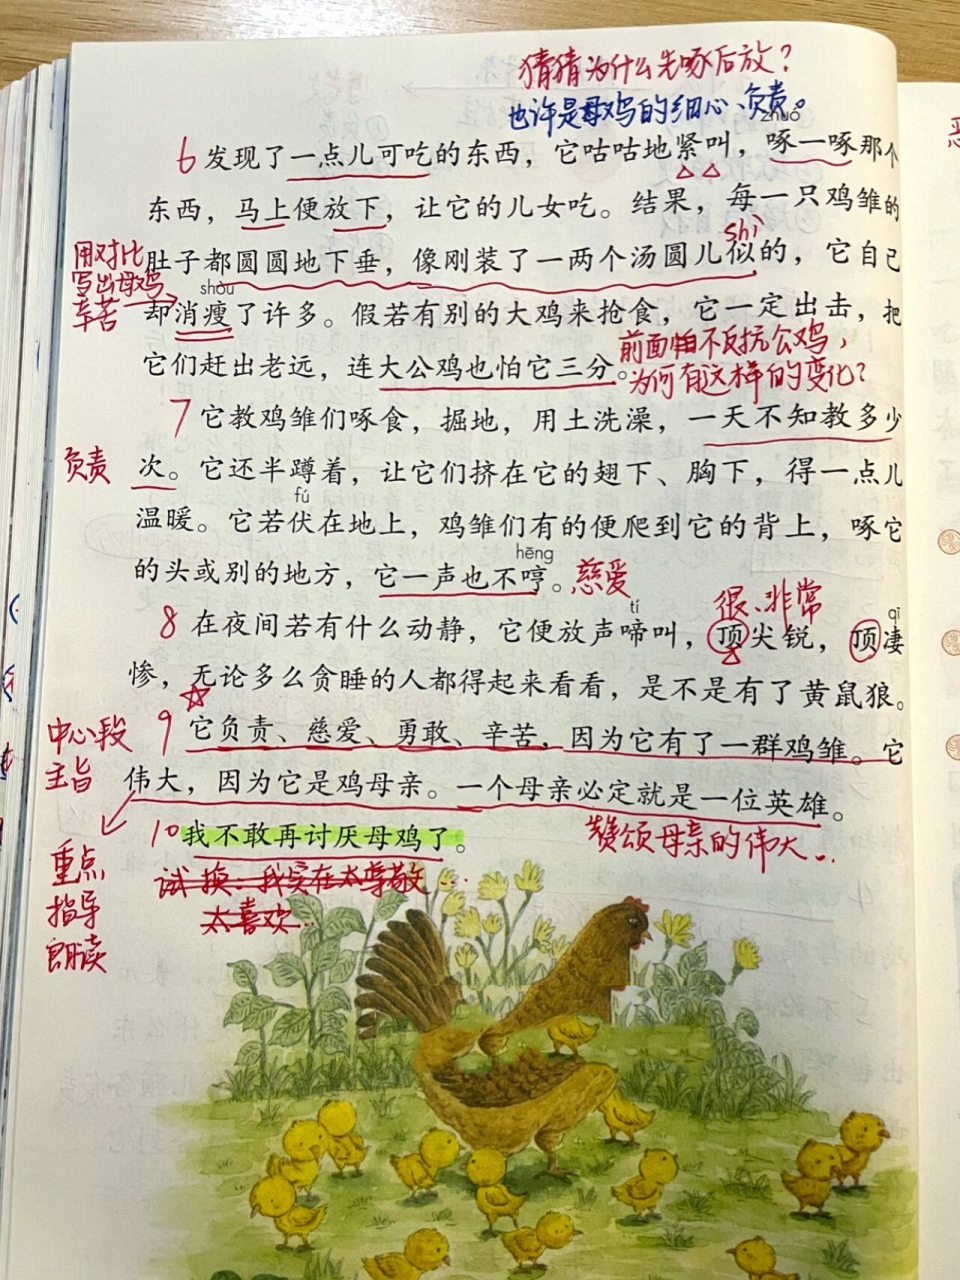 猜猜为什么先啄后放？
也许是母鸡的细心、负责。
zhuó
6 发现了一点儿可吃的东西，它咕咕地紧叫，啄一啄那个
东西，马上便放下，让它的儿女吃。结果，每一只鸡雏的
shì
用对比
写出母鸡
辛苦
肚子都圆圆地下垂，像刚装了一两个汤圆儿似的，它自己
shòu
却消瘦了许多。假若有别的大鸡来抢食，它一定出击，把
它们赶出老远，连大公鸡也怕它三分。
前面怕不反抗公鸡，
为何有这样的变化？
7 它教鸡雏们啄食，掘地，用土洗澡，一天不知教多少
负责
次。它还半蹲着，让它们挤在它的翅下、胸下，得一点儿
fú
温暖。它若伏在地上，鸡雏们有的便爬到它的背上，啄它
hēng
的头或别的地方，它一声也不哼。慈爱
很、非常
tí
qī
8 在夜间若有什么动静，它便放声啼叫，顶尖锐，顶凄
惨，无论多么贪睡的人都得起来看看，是不是有了黄鼠狼。
中心段
主旨
9 它负责、慈爱、勇敢、辛苦，因为它有了一群鸡雏。它
伟大，因为它是鸡母亲。一个母亲必定就是一位英雄。
10 我不敢再讨厌母鸡了。
赞颂母亲的伟大..
重点
指导
朗读
试换：我实在太尊敬..
太喜欢..